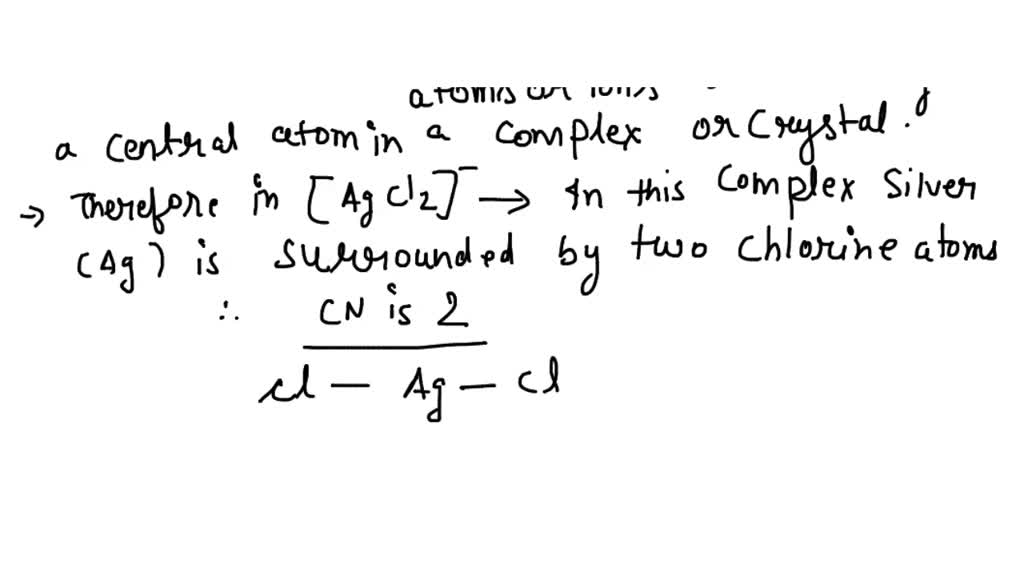 atoms or ions
a central atom in a complex or crystal.
→ Therefore in [AgCl2]⁻ → In this complex Silver
(Ag) is surrounded by two chlorine atoms
∴ CN is 2
Cl — Ag — Cl